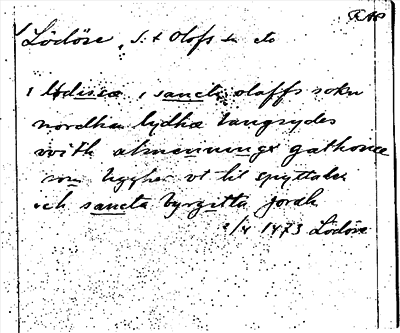 Lödöse, S:t Olofs sn etc
i lødisæ i sancti olaffs sokn
nordhan lydhæ langsydes
with almenninngx gathonæ
som liggher vt til spyttalen
och sancta byrgitta jordh
2/4 1473 Lödöse